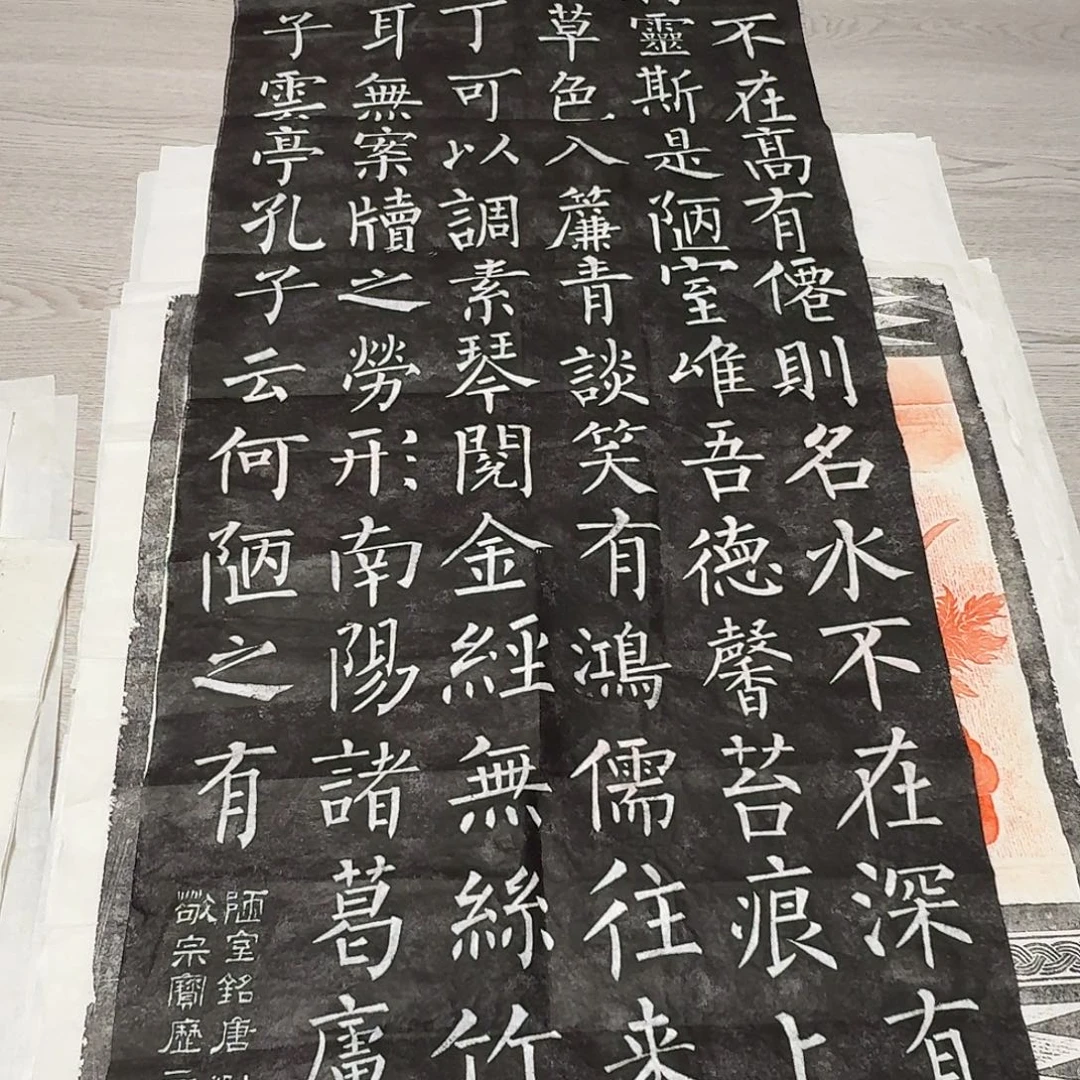 不在髙有僊則名水不在深有
靈斯是陋室唯吾德馨苔痕上
草色入簾青談笑有鴻儒往来
丁可以調素琴閱金經無絲竹
耳無案牘之勞形南陽諸葛廬
子雲亭孔子云何陋之有
陋室銘唐
敬宗寶歷